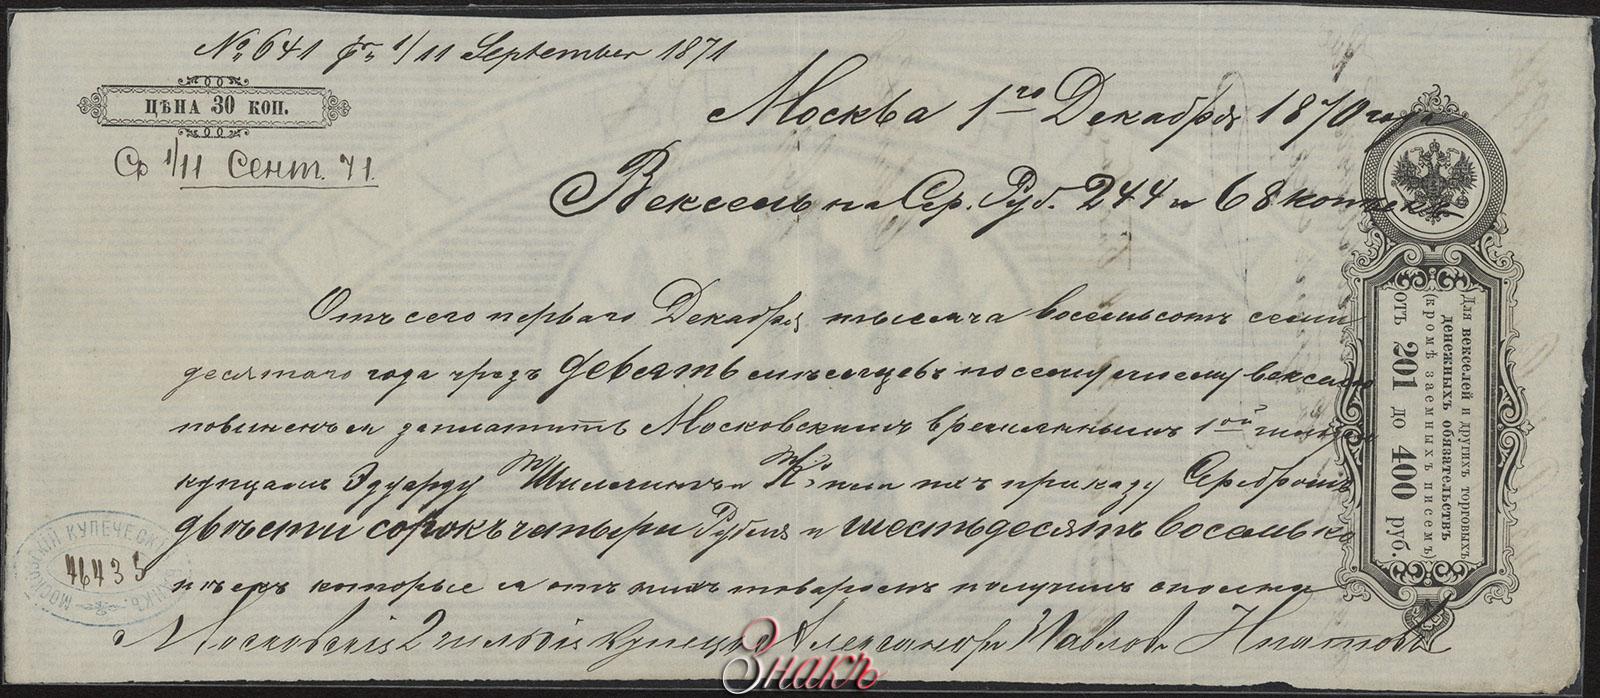 № 641 pr 1/11 September 1871
ЦѢНА 30 КОП.
Ср 1/11 Сент. 71.
Москва 1го Декабря 1870 года
Вексель на Сер. Руб. 244 и 68 копѣекъ
Отъ сего перваго Декабря тысяча восемьсотъ семи
десятаго года чрезъ девять мѣсяцевъ по сему моему векселю
повиненъ я заплатить Московскимъ временнымъ 1ой гильдіи
купцамъ Эдуарду и Кº или ихъ приказу Серебромъ
двѣсти сорокъ четыре Рубля и шестьдесятъ восемь ко
пѣекъ которые я отъ нихъ товаромъ получилъ сполна
Московскій 2 гильдіи купецъ Александръ Павловъ Ипатовъ
Для векселей и другихъ торговыхъ
денежныхъ обязательствъ
(кромѣ заемныхъ писемъ)
отъ 201 до 400 руб.
МОСКОВСКІЙ КУПЕЧЕСКІЙ БАНКЪ
46435
Знакъ